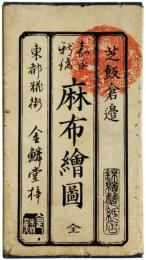 芝飯倉邊
嘉永
新鐫
麻布繪圖 全
東都麹街 金鱗堂梓